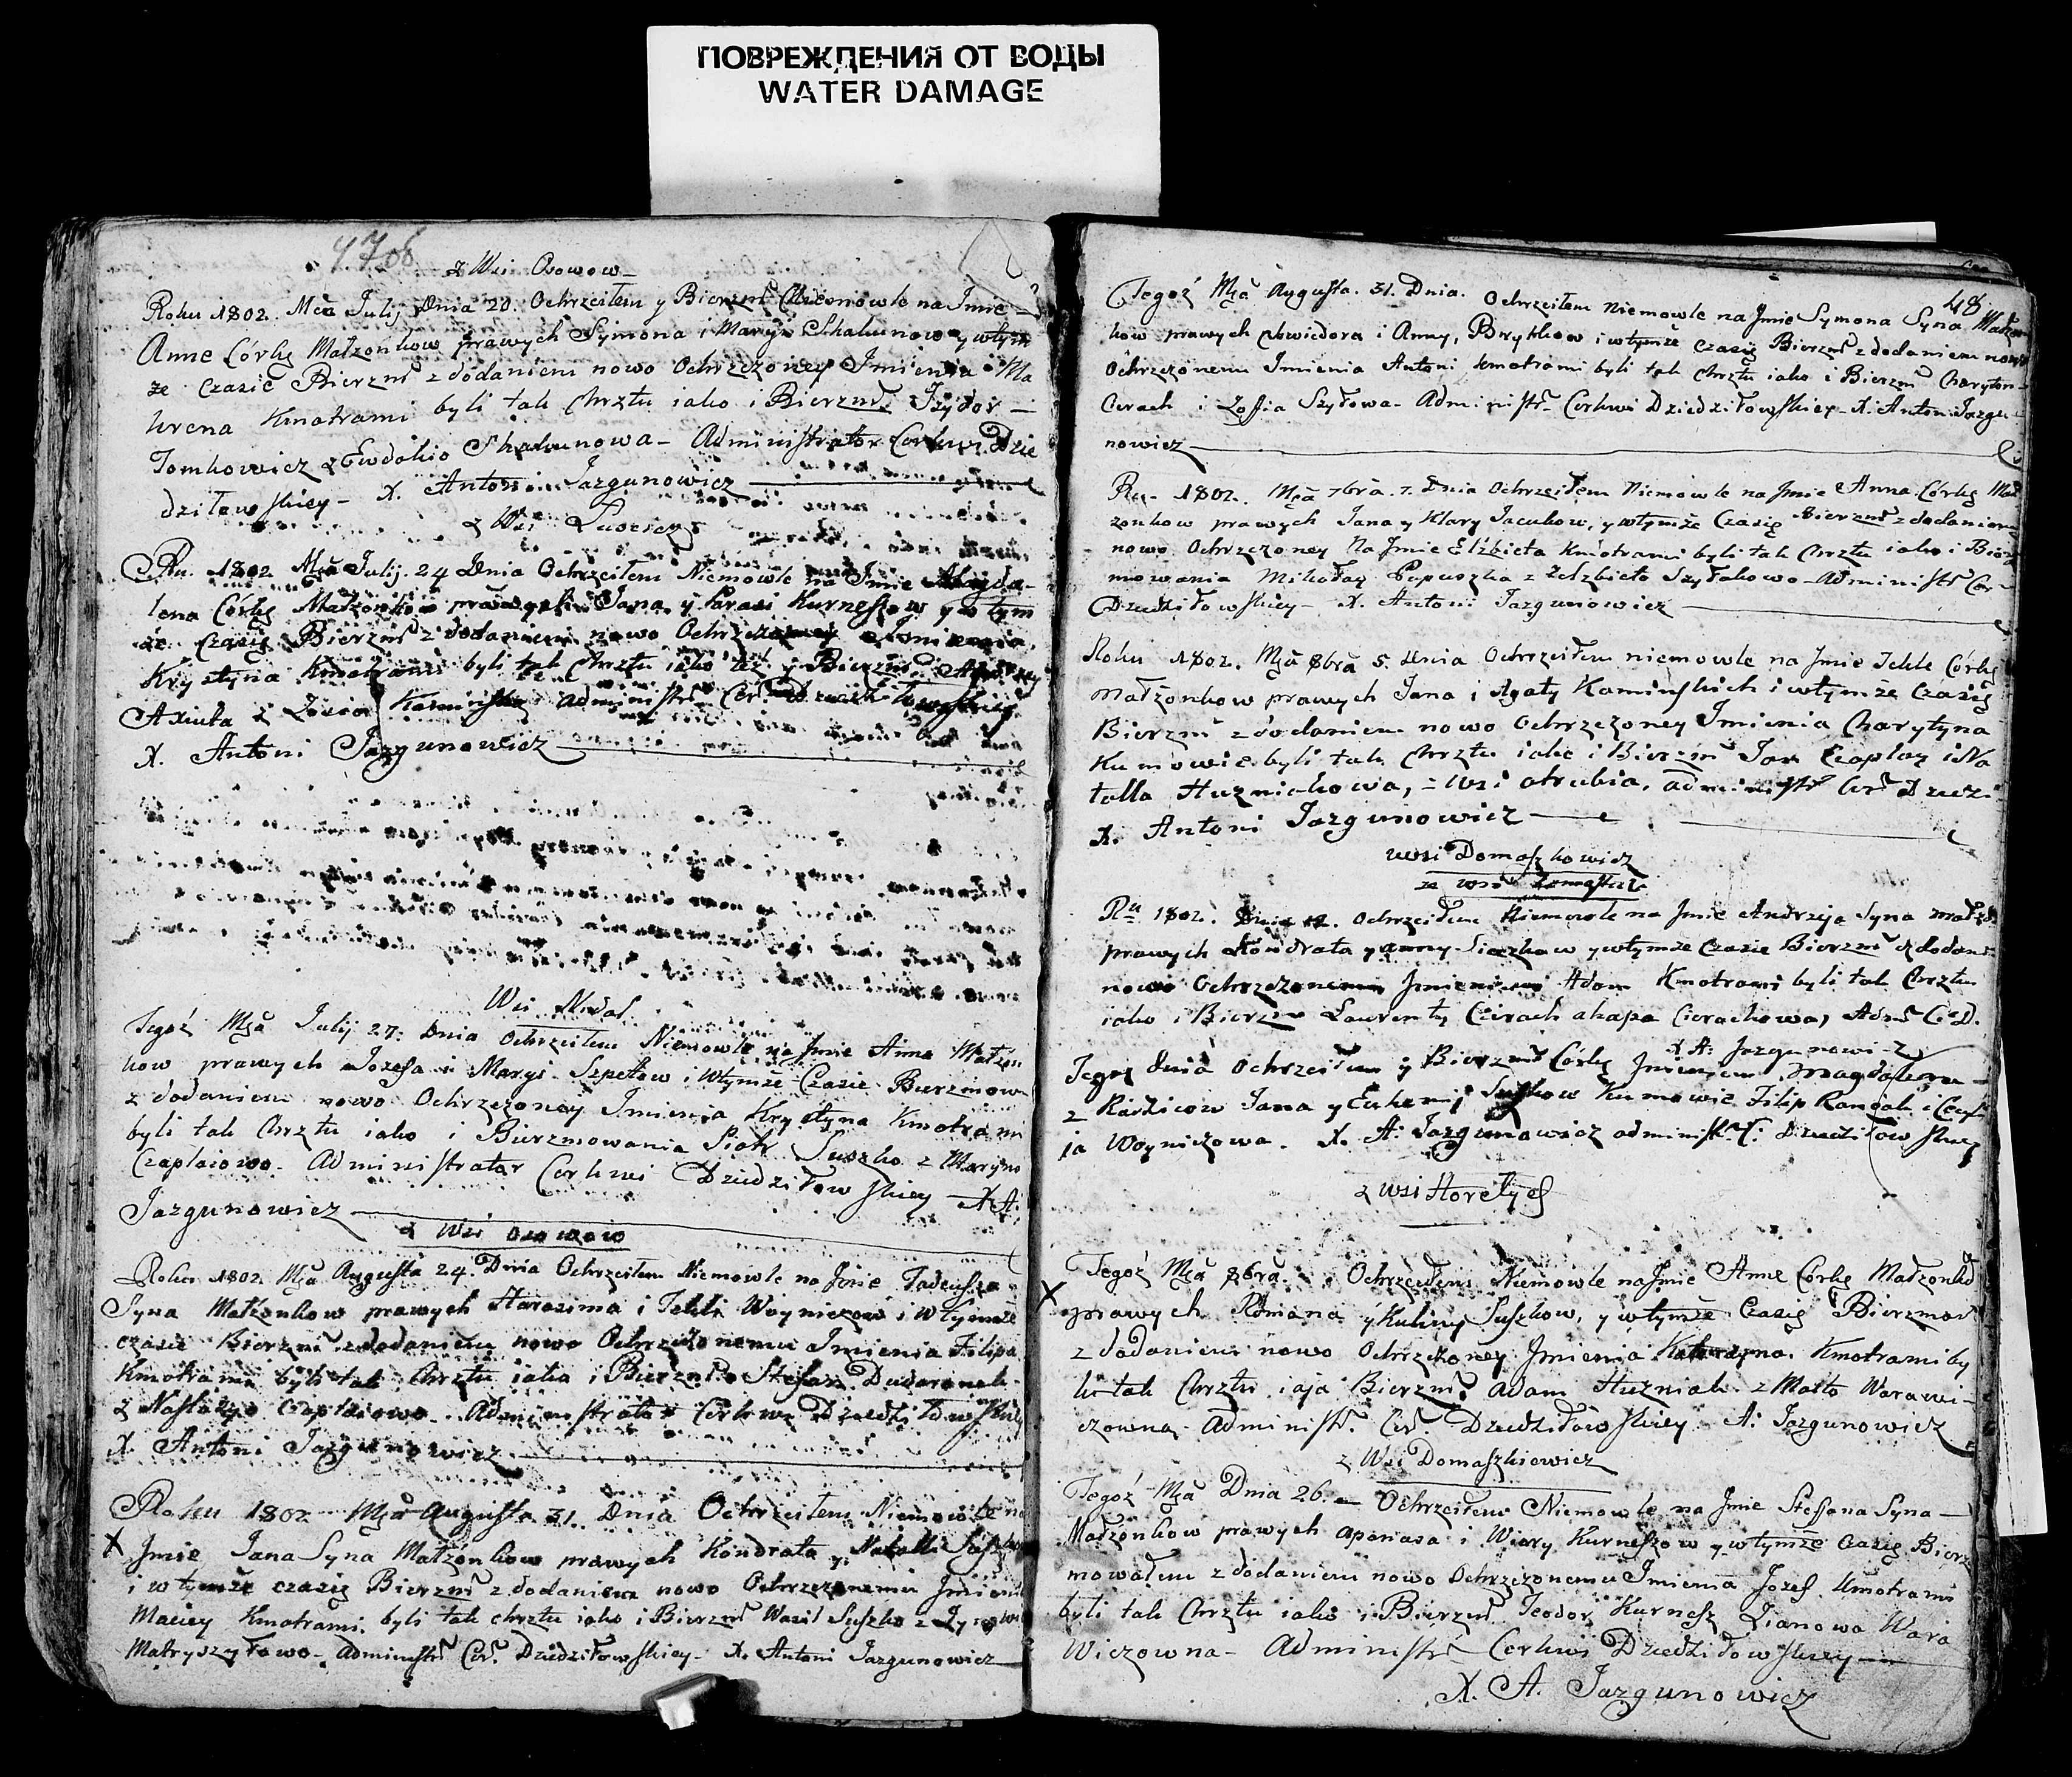 ПОВРЕЖДЕНИЯ ОТ ВОДЫ
WATER DAMAGE
47об
z Wsi Osowow
Roku 1802. Mca Julij Dnia 20. Ochrzciłem y Bierzm Niemowle na Jmie
Anne Córkę Małzonkow prawych Symona i Maryi Skakunow y wtym
ze Czasie Bierzm z dodaniem nowo Ochrzczoney Jmienia Ma
krena Kmotrami byli tak Chrztu iako i Bierzm Jzydor
Tomkowicz z Ewdokio Skakunowa - Administrator Cerkwi Dzie
dziłowskiey - X. Antoni Jazgunowicz
z Wsi
Ru. 1802 Mca Julij. 24 Dnia Ochrzciłem Niemowle na Jmie Magda-
lena Córkę Małzonkow prawych Jana y Parasi Kurneszow y w tym
ze Czasię Bierzm z dodaniem nowo Ochrzczoney Jmienia
Krystyna Kmotrami byli tak Chrztu iako tez y Bierzm
Axiuta z Kaminska administr Cer. Dziedziłowskiey
X. Antoni Jazgunowicz
Wsi Nedal
Tegoż Mca Julij 27. Dnia Ochrzciłem Niemowle na Jmie Anna Małzon
kow prawych Jozefa i Maryi Szpetow i wtymże Czasie Bierzmow
z dodaniem nowo Ochrzczoney Jmienia Krystyna Kmotrami
byli tak Chrztu iako i Bierzmowania Piotr Suszko z Maryno
Czaplaiowo. Administrator Cerkwi Dziedziłowskiey X. A.
Jazgunowicz
z Wsi Osowow
Roku 1802. Mca Augusta 24. Dnia Ochrzciłem Niemowle na Jmie Tadeusza
Syna Małżonkow prawych Harasima i Tekli Woyniczow i wtymże
czasie Bierzm z dodaniem nowo Ochrzczonemu Jmienia Filipa
Kmotrami byli tak Chrztu iako i Bierzm Stefan Dudaronek
z Nastazyo Czaplaiowo. Administrator Cerkwi Dziedziłowskiey
X. Antoni Jazgunowicz
Roku 1802 Mca Augusta 31. Dnia Ochrzciłem Niemowle na
X Jmie Jana Syna Małżonkow prawych Kondrata y Natalli
i wtymże czasię Bierzm z dodaniem nowo Ochrzczonemu Jmienia
Maciey Kmotrami byli tak chrztu iako i Bierzm Wasil Suszko z
Matryszyłowo - Administr Cer. Dziedziłowskiey - X. Antoni Jazgunowicz
48
Tegoż Mca Augusta. 31. Dnia. Ochrzciłem Niemowle na Jmie Symona Syna Małzon
kow prawych Chwiedora i Anny, Brytkow i wtymże czasię Bierzm z dodaniem nowo
Ochrzczonemu Jmienia Antoni kmotrami byli tak chrztu iako i Bierzm Charyton
Cierach i Zofia Szyłowa - Administr Cerkwi Dziedziłowskiey - X. Antoni Jazgu
nowicz
Ru - 1802. Mca 7bra. 7. Dnia Ochrzciłem Niemowle na Jmie Anna Córkę Mał
zonkow prawych Jana y Klary Jacukow, y wtymże Czasię Bierzm z dodaniem
nowo Ochrzczoney Na Jmie Elżbieta Kmotrami byli tak Chrztu iako i Bierz
mowania Mikołay Papuszka z Helzbieto Szyłakowo - Administr Cer
Dziedziłowskiey - X. Antoni Jazgunowicz
Roku 1802. Mca 8bra 5. Dnia Ochrzciłem niemowle na Jmie Tekle Córkę
małżonkow prawych Jana i Agaty Kaminskich i wtymże Czasię
Bierzm z dodaniem nowo Ochrzczoney Jmienia Charytyna
Kumowie byli tak Chrztu iako i Bierzm Jan Czaplay i Na
talla Huzniakowa, z wsi otrubia. administr Cer Dziedzi
X. Antoni Jazgunowicz
wsi Domaszkowicz
ze wsi
Ru 1802. Dnia 12. Ochrzciłem Niemowle na Jmie Andrzeja Syna małżo
prawych Kondrata y anny Sieczkow y wtymże Czasie Bierzm z dodani
nowo Ochrzczonemu Jmieniem Adam Kmotrami byli tak Chrztu
iako i Bierzm Laurenty Cierach ahapa Cierachowa, Adm C. D.
X A: Jazgunowicz
Tegoż dnia Ochrzciłem y Bierzm Córkę Jmieniem Magdalena
z Rodzicow Jana y Euhenij Suszkow Kumowie Filip Randak i Cecyl
ia Woyniczowa. X. A: Jazgunowicz administr. C: Dziedziłowskiey
z wsi Horełych
Tegoż Mca 8bra. Ochrzciłem Niemowle na Jmie Anne Córkę Małzonko
X prawych Romana y Kuliny Suszkow, y wtymże Czasię Bierzmow
z dodaniem nowo Ochrzczoney Jmienia Katarzyna. Kmotrami by
li tak Chrztu iaja Bierzm Adam Huzniak z Marto Warawi
czowna - Administr. Cer. Dziedziłowskiey A: Jazgunowicz
z Wsi Domaszkiewicz
Tegoż Mca Dnia 26. Ochrzciłem Niemowle na Jmie Stefana Syna
Małzonkow prawych Aponasa i Wiery Kurneszow y wtymże Czasię Bierz
mowałem z dodaniem nowo Ochrzczonemu Jmienia Jozef. Kmotrami
byli tak Chrztu iako i Bierzm Teodor Kurnesz Zianowa Wara
wiczowna - Administr Cerkwi Dziedziłowskiey
X. A. Jazgunowicz